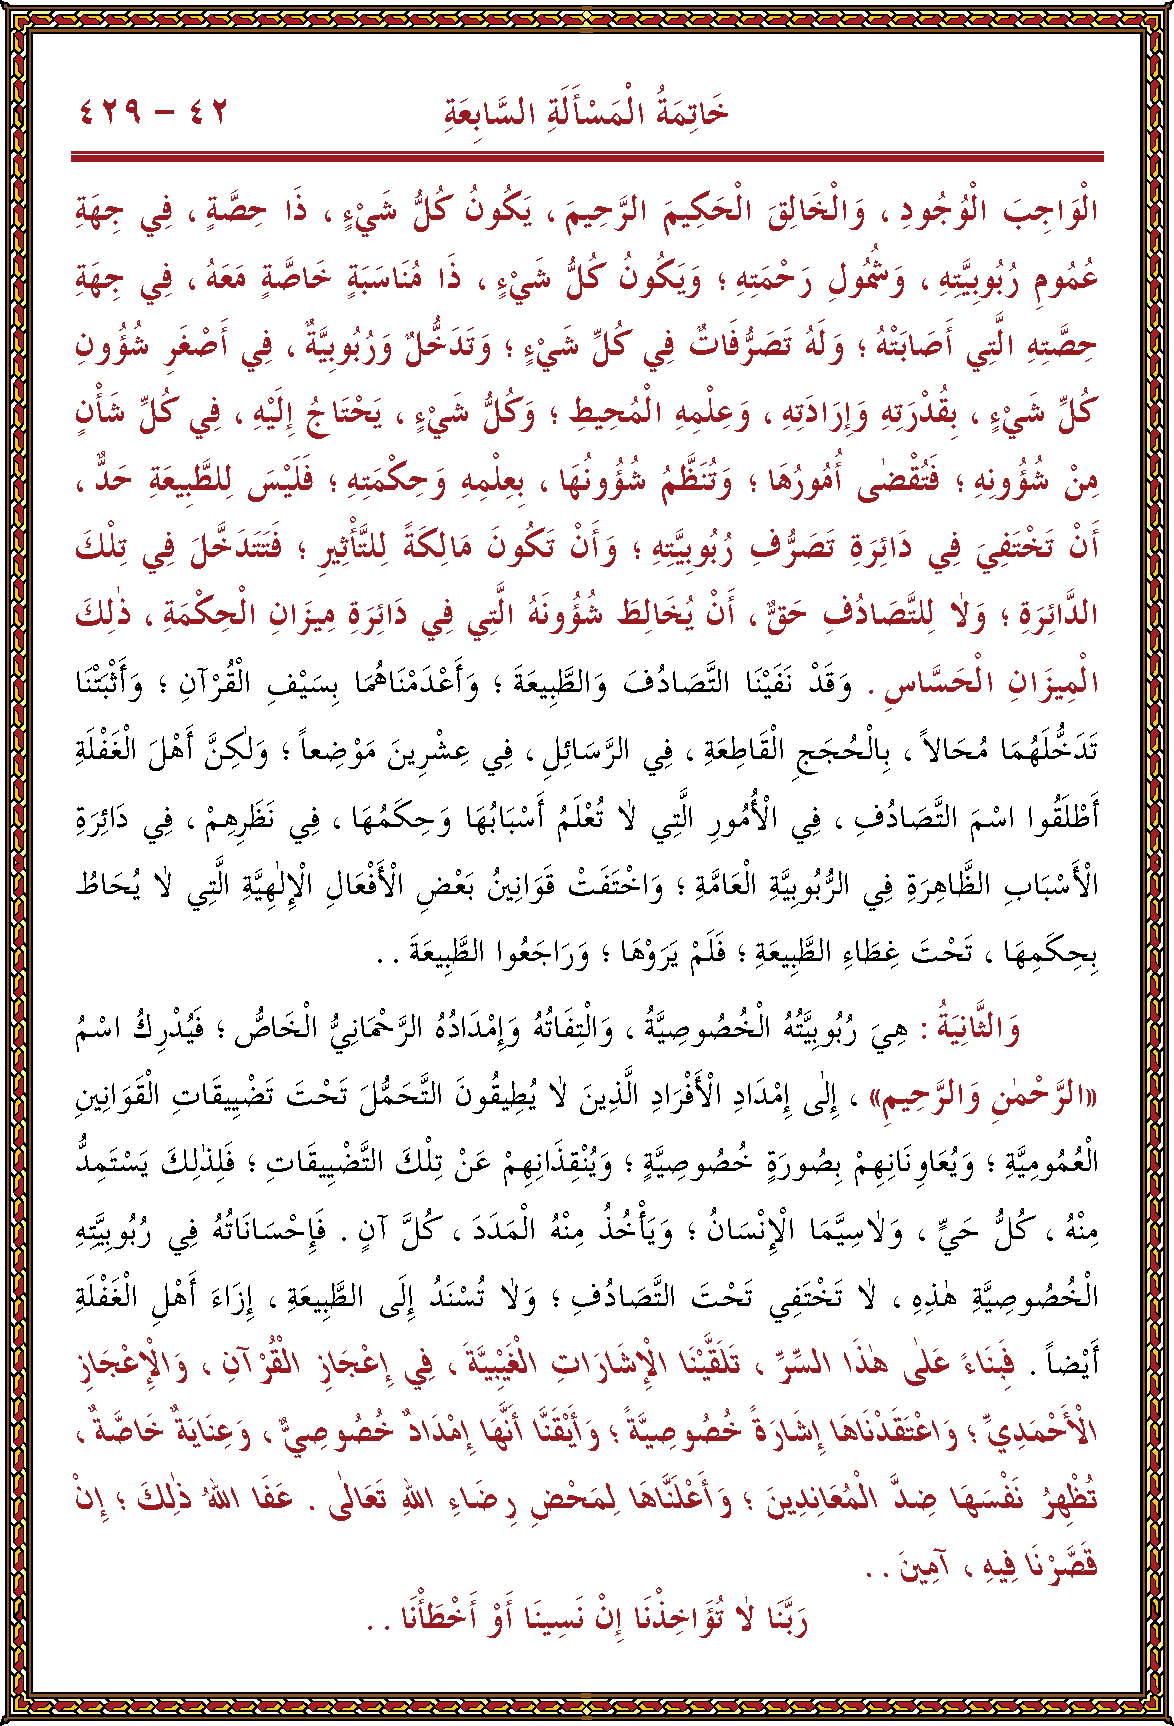 خَاتِمَةُ الْمَسْأَلَةِ السَّابِعَةِ ٤٢ – ٤٢٩
الْوَاجِبَ الْوُجُودِ ، وَالْخَالِقَ الْحَكِيمَ الرَّحِيمَ ، يَكُونُ كُلُّ شَيْءٍ ، ذَا حِصَّةٍ ، فِي جِهَةِ
عُمُومِ رُبُوبِيَّتِهِ ، وَشُمُولِ رَحْمَتِهِ ؛ وَيَكُونُ كُلُّ شَيْءٍ ، ذَا مُنَاسَبَةٍ خَاصَّةٍ مَعَهُ ، فِي جِهَةِ
حِصَّتِهِ الَّتِي أَصَابَتْهُ ؛ وَلَهُ تَصَرُّفَاتٌ فِي كُلِّ شَيْءٍ ؛ وَتَدَخُّلٌ وَرُبُوبِيَّةٌ ، فِي أَصْغَرِ شُؤُونِ
كُلِّ شَيْءٍ ، بِقُدْرَتِهِ وَإِرَادَتِهِ ، وَعِلْمِهِ الْمُحِيطِ ؛ وَكُلُّ شَيْءٍ ، يَحْتَاجُ إِلَيْهِ ، فِي كُلِّ شَأْنٍ
مِنْ شُؤُونِهِ ؛ فَتُقْضٰى أُمُورُهَا ؛ وَتُنَظَّمُ شُؤُونُهَا ، بِعِلْمِهِ وَحِكْمَتِهِ ؛ فَلَيْسَ لِلطَّبِيعَةِ حَدٌّ ،
أَنْ تَخْتَفِيَ فِي دَائِرَةِ تَصَرُّفِ رُبُوبِيَّتِهِ ؛ وَأَنْ تَكُونَ مَالِكَةً لِلتَّأْثِيرِ ؛ فَتَتَدَخَّلَ فِي تِلْكَ
الدَّائِرَةِ ؛ وَلَا لِلتَّصَادُفِ حَقٌّ ، أَنْ يُخَالِطَ شُؤُونَهُ الَّتِي فِي دَائِرَةِ مِيزَانِ الْحِكْمَةِ ، ذٰلِكَ
الْمِيزَانِ الْحَسَّاسِ . وَقَدْ نَفَيْنَا التَّصَادُفَ وَالطَّبِيعَةَ ؛ وَأَعْدَمْنَاهُمَا بِسَيْفِ الْقُرْآنِ ؛ وَأَثْبَتْنَا
تَدَخُّلَهُمَا مُحَالاً ، بِالْحُجَجِ الْقَاطِعَةِ ، فِي الرَّسَائِلِ ، فِي عِشْرِينَ مَوْضِعاً ؛ وَلٰكِنَّ أَهْلَ الْغَفْلَةِ
أَطْلَقُوا اسْمَ التَّصَادُفِ ، فِي الْأُمُورِ الَّتِي لَا تُعْلَمُ أَسْبَابُهَا وَحِكَمُهَا ، فِي نَظَرِهِمْ ، فِي دَائِرَةِ
الْأَسْبَابِ الظَّاهِرَةِ فِي الرُّبُوبِيَّةِ الْعَامَّةِ ؛ وَاخْتَفَتْ قَوَانِينُ بَعْضِ الْأَفْعَالِ الْإِلٰهِيَّةِ الَّتِي لَا يُحَاطُ
بِحِكَمِهَا ، تَحْتَ غِطَاءِ الطَّبِيعَةِ ؛ فَلَمْ يَرَوْهَا ؛ وَرَاجَعُوا الطَّبِيعَةَ . .
وَالثَّانِيَةُ : هِيَ رُبُوبِيَّتُهُ الْخُصُوصِيَّةُ ، وَالْتِفَاتُهُ وَإِمْدَادُهُ الرَّحْمَانِيُّ الْخَاصُّ ؛ فَيُدْرِكُ اسْمُ
«الرَّحْمٰنِ وَالرَّحِيمِ» ، إِلٰى إِمْدَادِ الْأَفْرَادِ الَّذِينَ لَا يُطِيقُونَ التَّحَمُّلَ تَحْتَ تَضْيِيقَاتِ الْقَوَانِينِ
الْعُمُومِيَّةِ ؛ وَيُعَاوِنَانِهِمْ بِصُورَةٍ خُصُوصِيَّةٍ ؛ وَيُنْقِذَانِهِمْ عَنْ تِلْكَ التَّضْيِيقَاتِ ؛ فَلِذٰلِكَ يَسْتَمِدُّ
مِنْهُ ، كُلُّ حَيٍّ ، وَلَاسِيَّمَا الْإِنْسَانُ ؛ وَيَأْخُذُ مِنْهُ الْمَدَدَ ، كُلَّ آنٍ . فَإِحْسَانَاتُهُ فِي رُبُوبِيَّتِهِ
الْخُصُوصِيَّةِ هٰذِهِ ، لَا تَخْتَفِي تَحْتَ التَّصَادُفِ ؛ وَلَا تُسْنَدُ إِلَى الطَّبِيعَةِ ، إِزَاءَ أَهْلِ الْغَفْلَةِ
أَيْضاً . فَبِنَاءً عَلٰى هٰذَا السِّرِّ ، تَلَقَّيْنَا الْإِشَارَاتِ الْغَيْبِيَّةَ ، فِي إِعْجَازِ الْقُرْآنِ ، وَالْإِعْجَازِ
الْأَحْمَدِيِّ ؛ وَاعْتَقَدْنَاهَا إِشَارَةً خُصُوصِيَّةً ؛ وَأَيْقَنَّا أَنَّهَا إِمْدَادٌ خُصُوصِيٌّ ، وَعِنَايَةٌ خَاصَّةٌ ،
تُظْهِرُ نَفْسَهَا ضِدَّ الْمُعَانِدِينَ ؛ وَأَعْلَنَّاهَا لِمَحْضِ رِضَاءِ اللهِ تَعَالٰى . عَفَا اللهُ ذٰلِكَ ؛ إِنْ
قَصَّرْنَا فِيهِ ، آمِينَ . .
رَبَّنَا لَا تُؤَاخِذْنَا إِنْ نَسِينَا أَوْ أَخْطَأْنَا . .